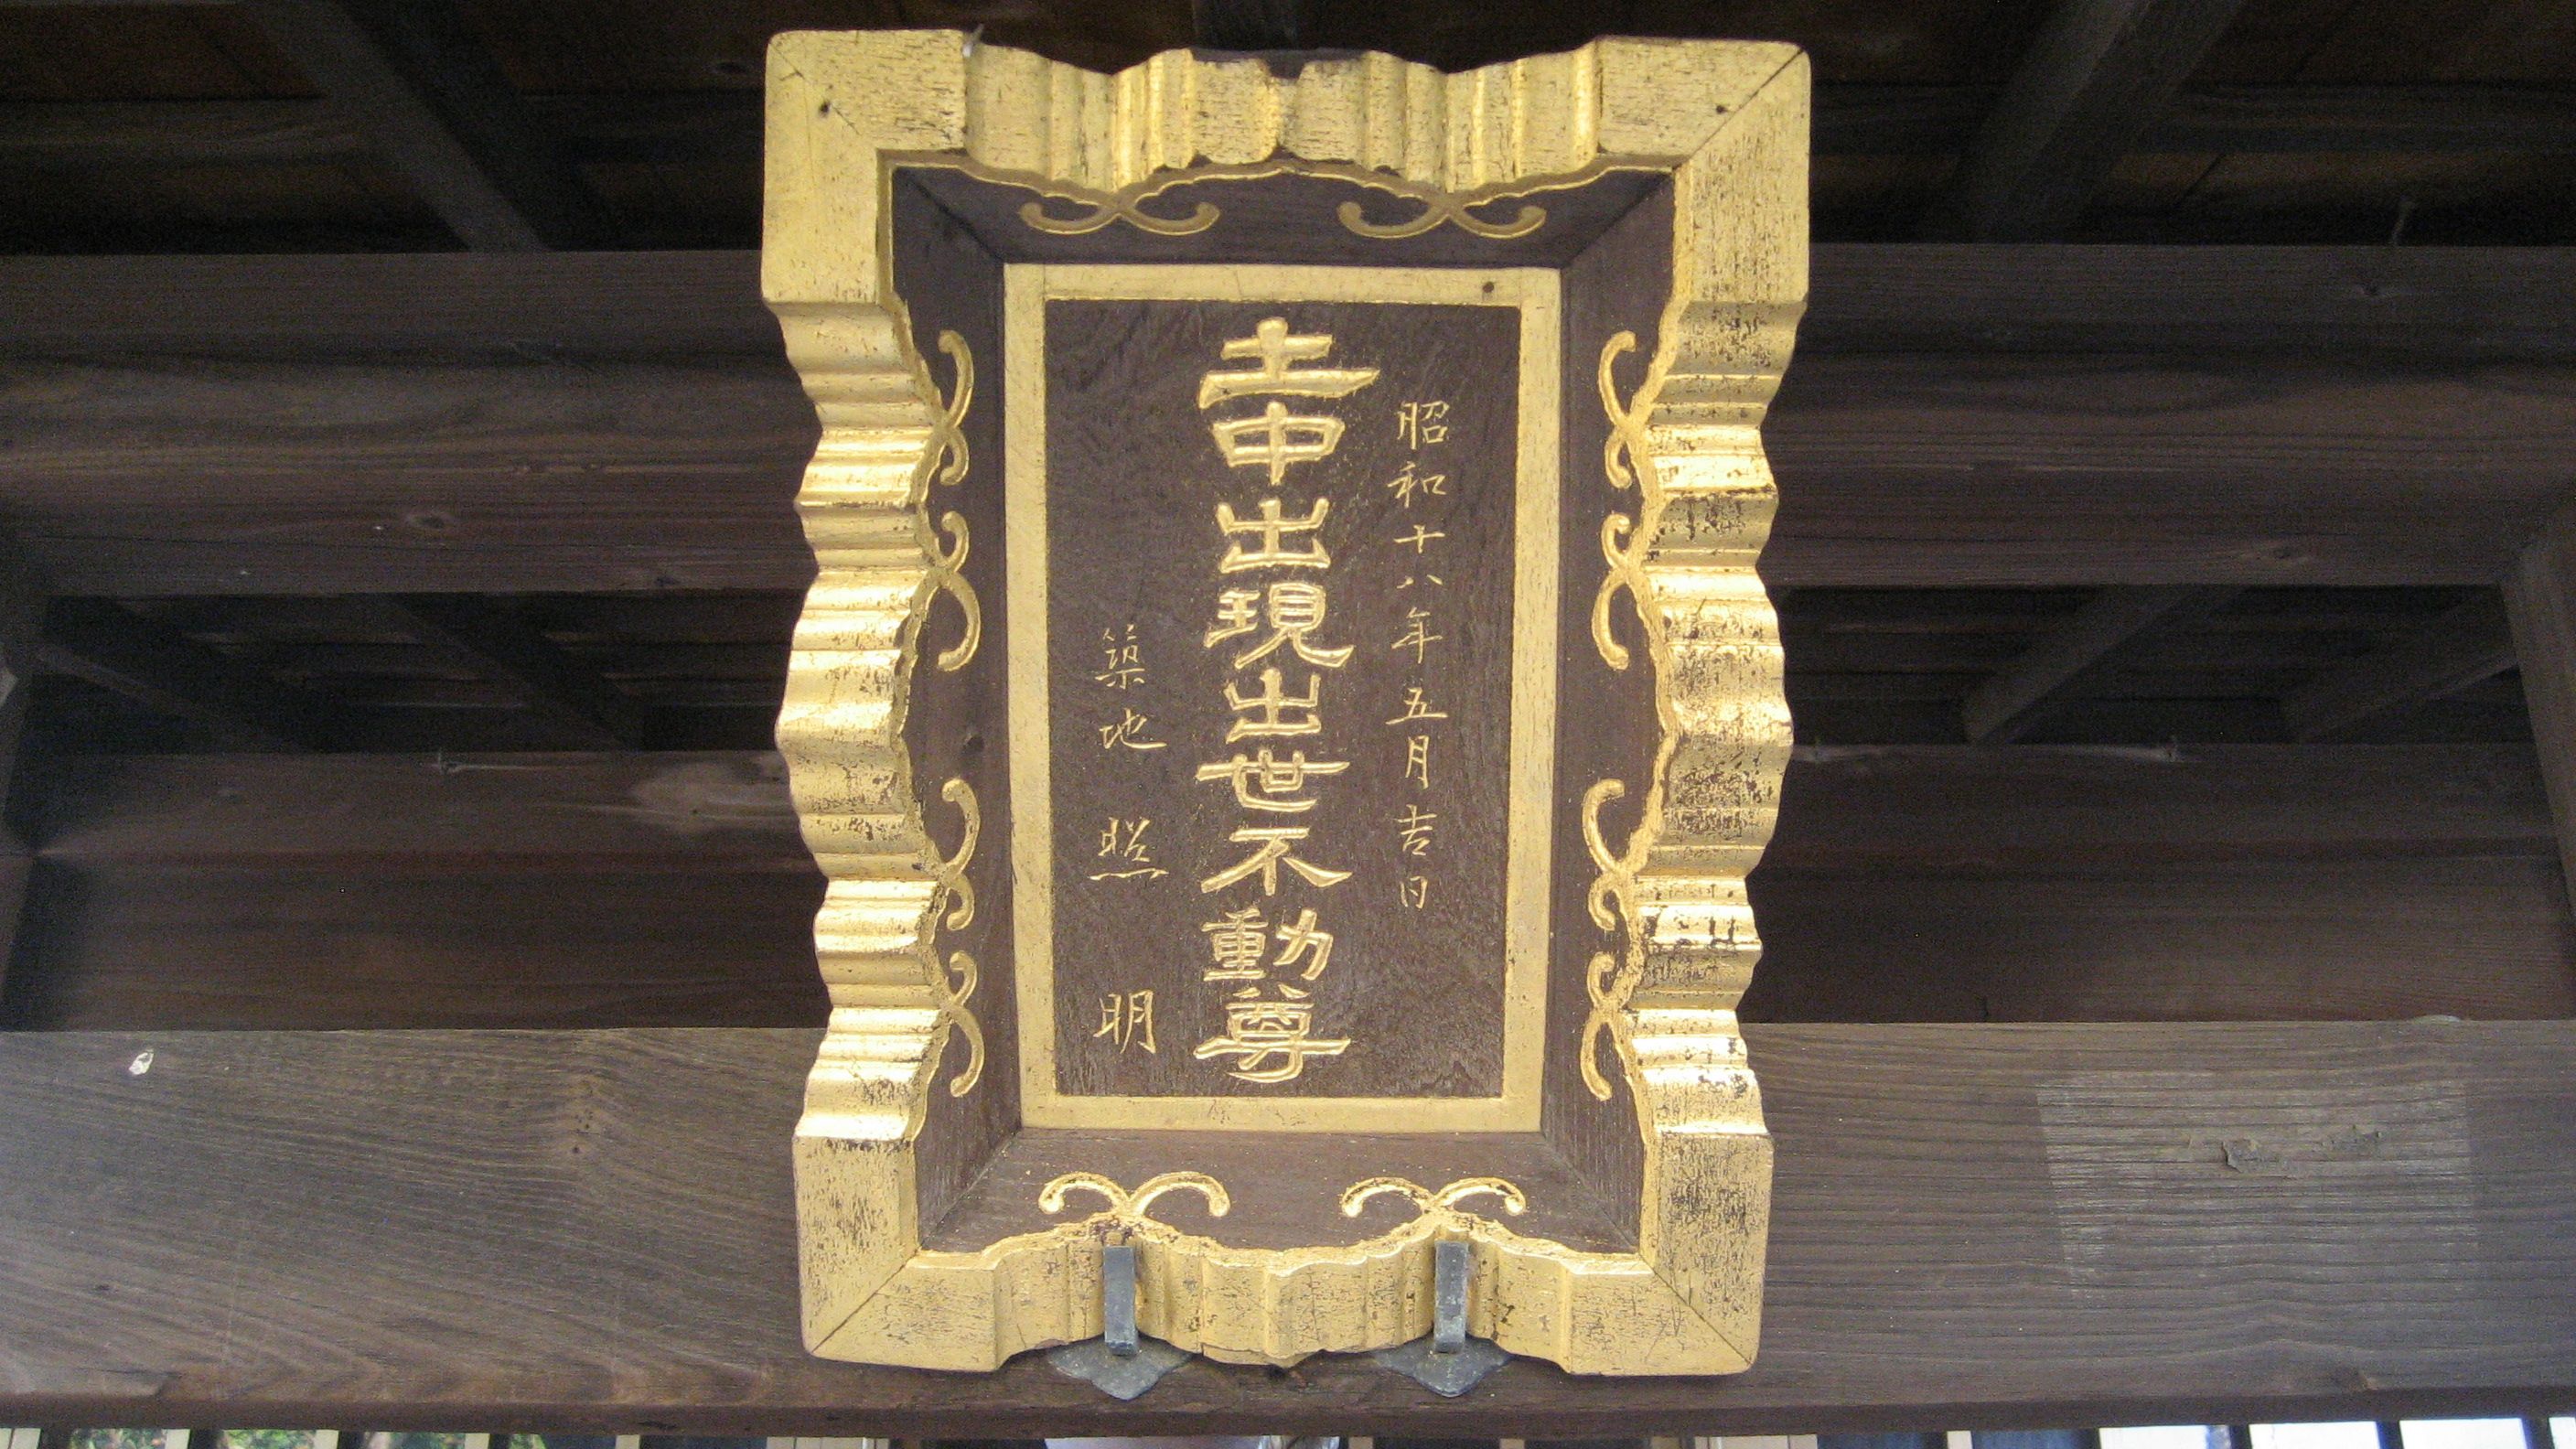 昭和十八年五月吉日
土中出現出世不動尊
築地照明